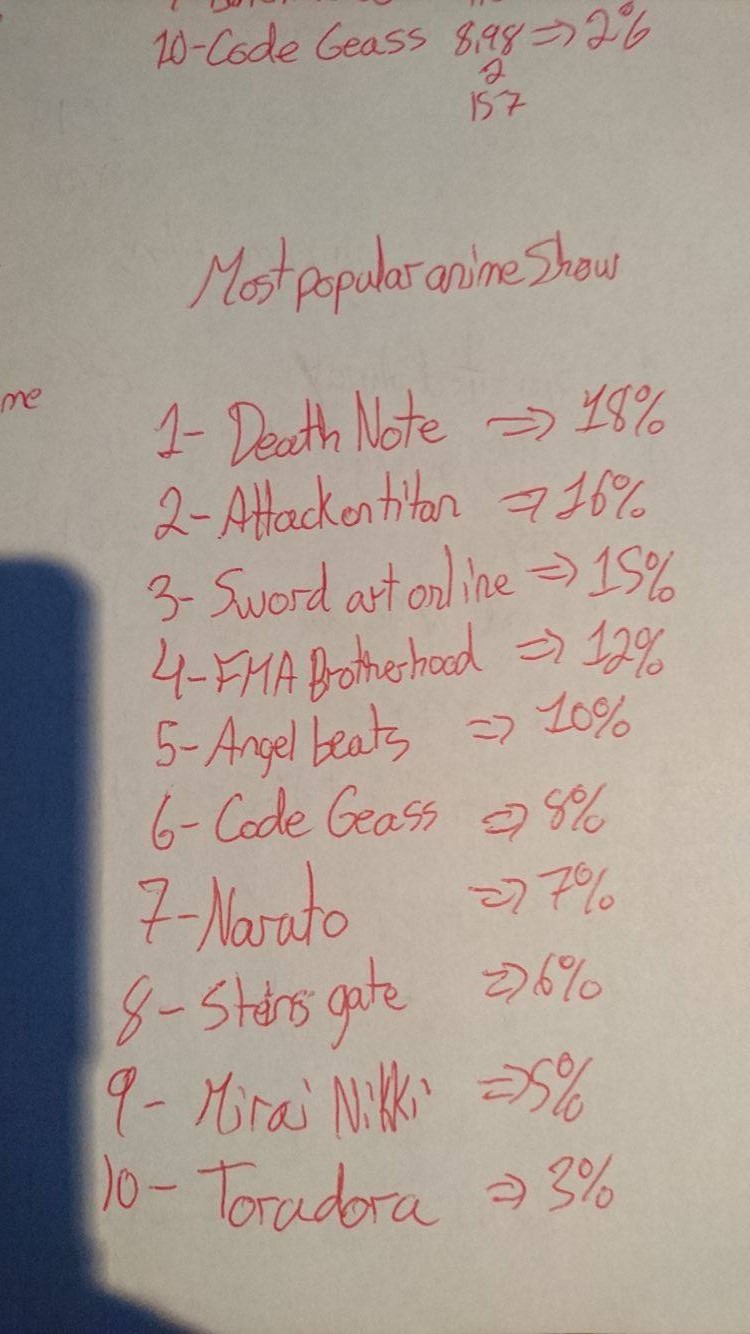 10-Code Geass 8,98 => 2%
2
157
Most popular anime Show
me
1- Death Note => 18%
2- Attack on titan => 16%
3- Sword art online => 15%
4- FMA Brotherhood => 12%
5- Angel beats => 10%
6- Code Geass => 8%
7- Naruto => 7%
8- Steins gate => 6%
9- Mirai Nikki => 5%
10- Toradora => 3%